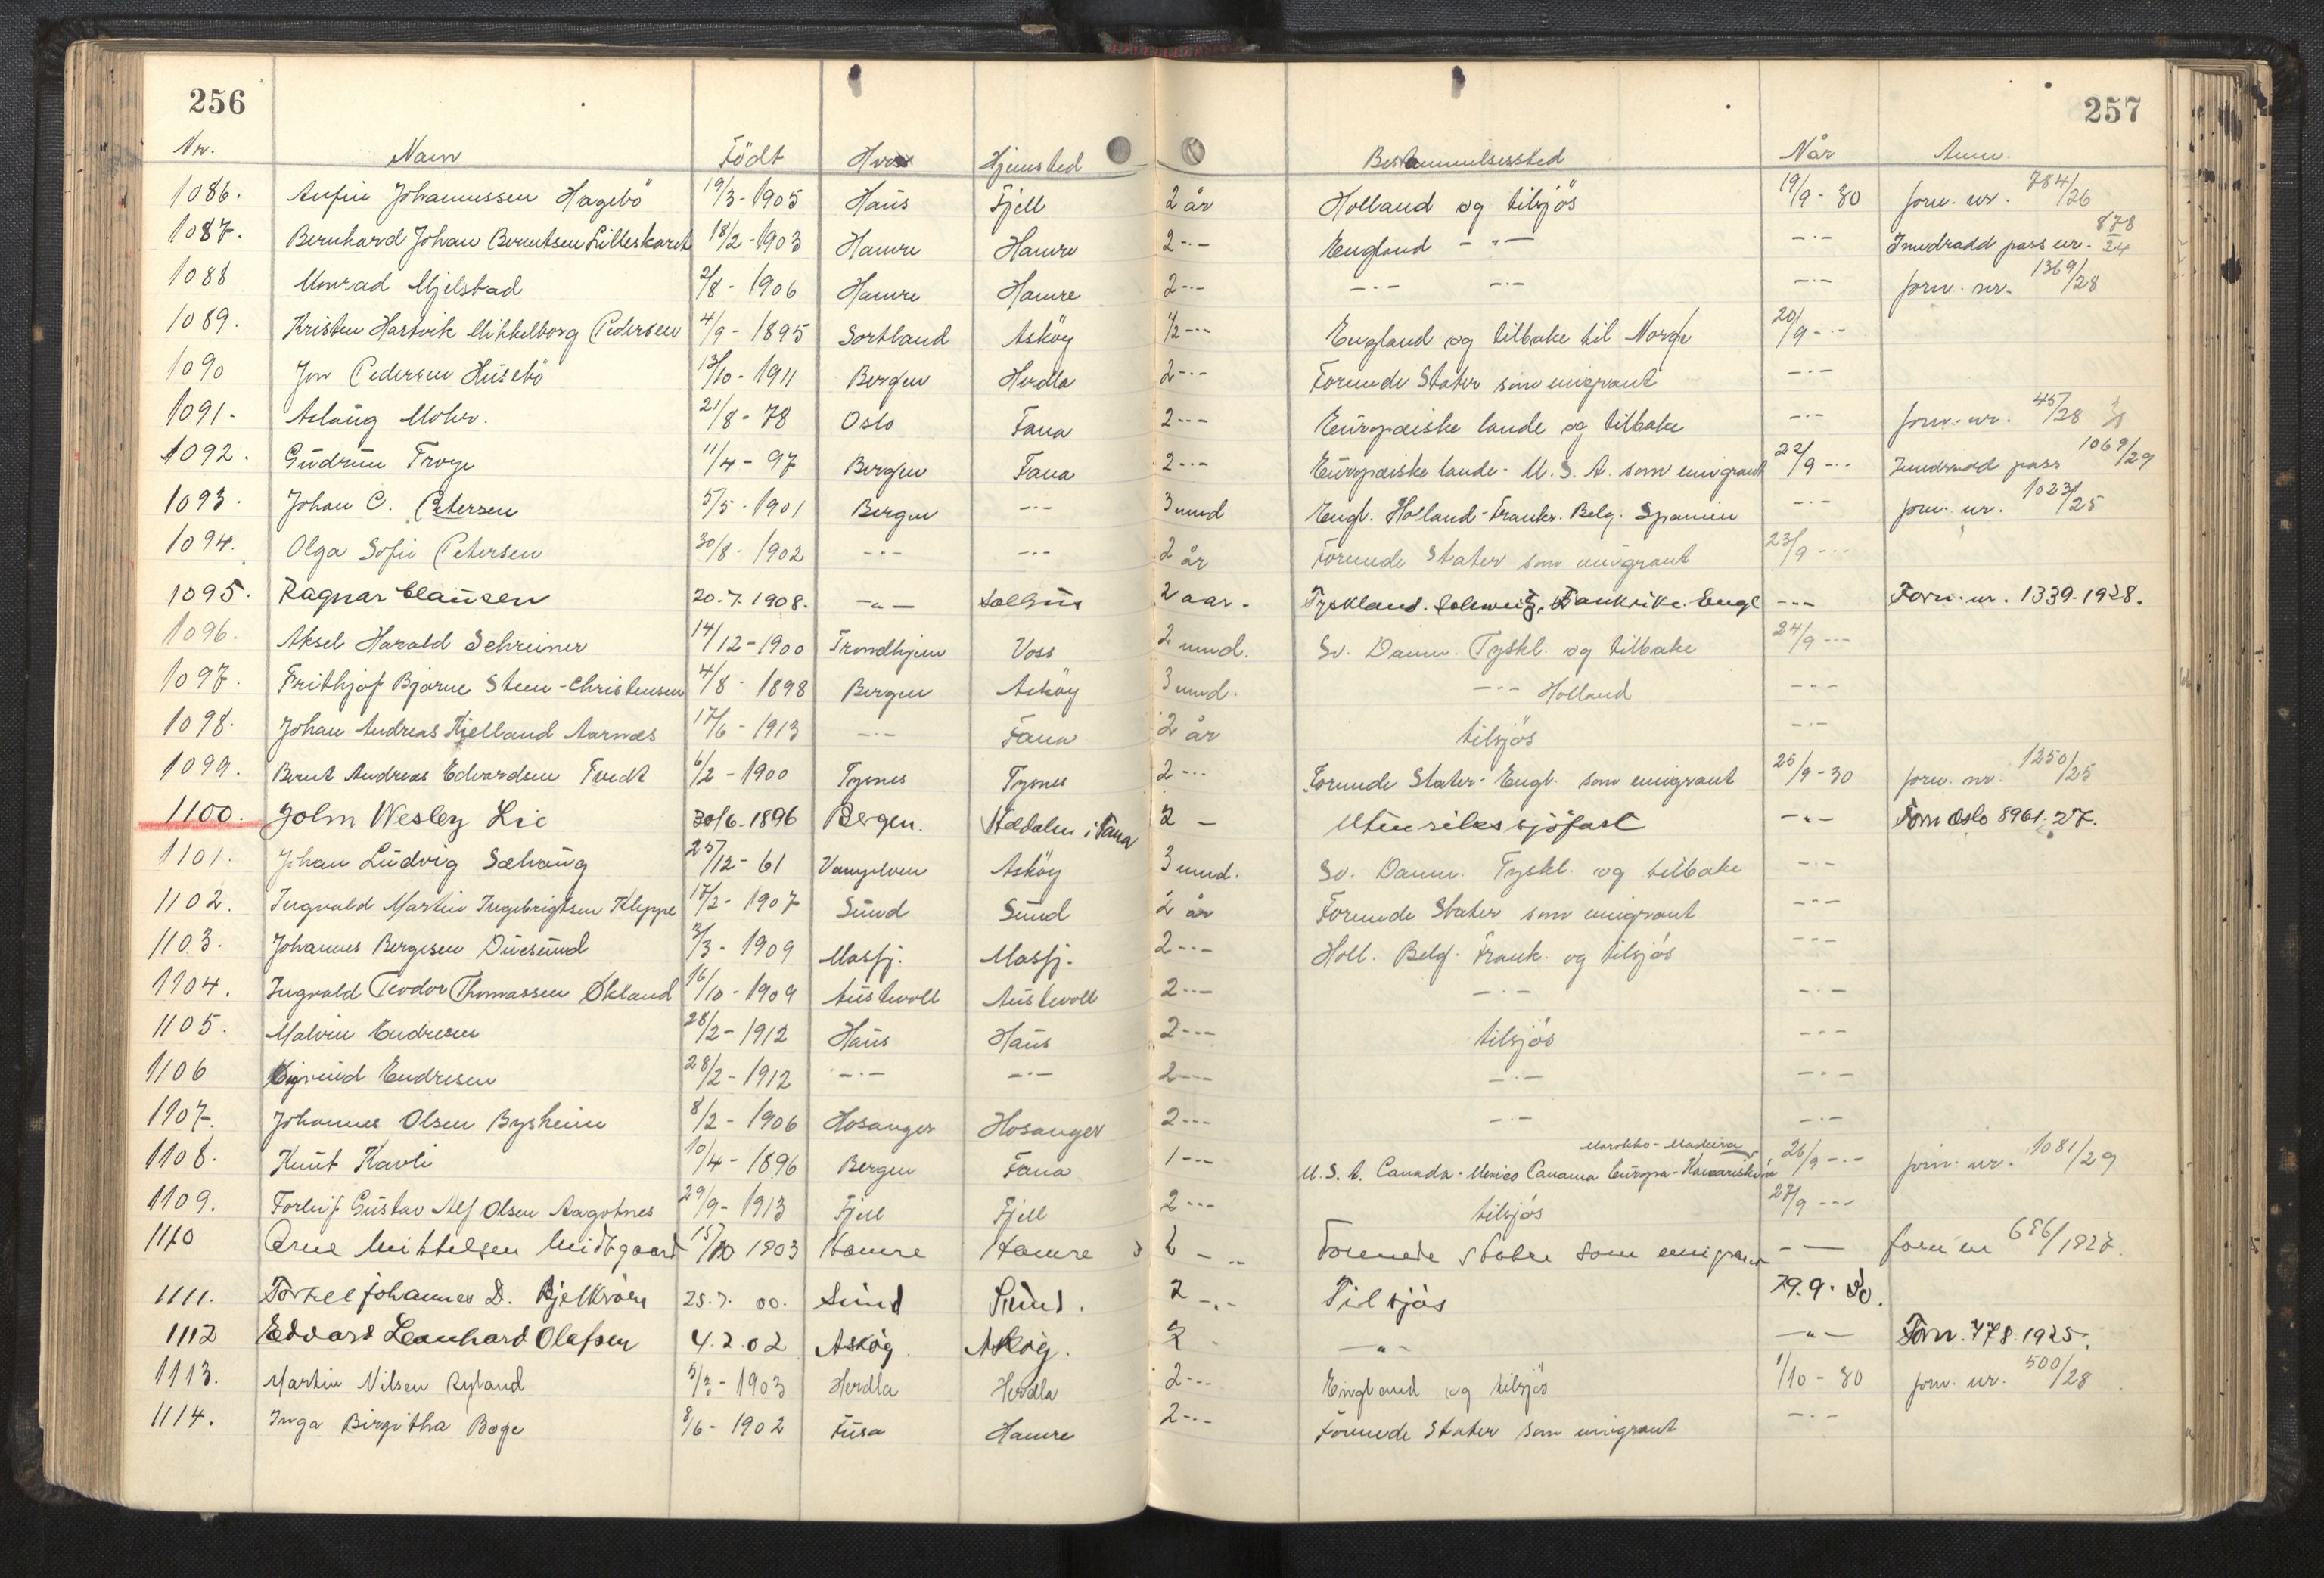 256 257
Nr. Navn Födt Hvor Hjemsted Bestemmelsessted Når Anm.
1086. Anfin Johannessen Hagebö 19/3-1905 Haus Fjell 2 år Holland og tilsjös 19/9-30 forn. nr. 784/26
1087. Bernhard Johan Berntsen Lilleskaret 18/2-1903 Hamre Hamre 2 -"- England -"- -"- Inndradd pass nr. 878/24
1088 Monrad Mjelstad 2/8-1906 Hamre Hamre 2 -"- -"- -"- -"- forn. nr. 1369/28
1089. Kristen Hartvik Mikkelborg Pedersen 4/9-1895 Sortland Asköy 1/2 -"- England og tilbake til Norge 20/9 -"-
1090 Jon Pedersen Husebö 13/10-1911 Bergen Herdla 2 -"- Forenede Stater som emigrant -"-
1091. Aslaug Mohr. 21/8-78 Oslo Fana 2 -"- Europæiske lande og tilbake -"- forn. nr. 45/28
1092. Gudrun Troye 11/4-97 Bergen Fana 2 -"- Europæiske lande - U.S.A. som emigrant 22/9 -"- Inndradd pass 1069/29
1093. Johan C. Petersen 5/5-1901 Bergen -"- 3 mnd Engl. Holland-Frankr. Belg. Spanien -"- forn. nr. 1023/25
1094. Olga Sofie Petersen 30/8-1902 -"- -"- 2 år Forenede Stater som emigrant 23/9 -"-
1095. Ragnar Clausen 20.7.1908. -"- Solhus 2 aar. Tyskland. Schweitz, Frankrike. Engl -"- Forn. nr. 1339-1928.
1096. Aksel Harald Schreiner 14/12-1900 Trondhjem Voss 2 mnd. Sv. Danm. Tyskl. og tilbake 24/9 -"-
1097. Frithjof Bjarne Steen-Christensen 4/8-1898 Bergen Asköy 3 mnd. -"- Holland -"-
1098. Johan Andreas Kielland Aarnæs 17/6-1913 -"- Fana 2 år tilsjös -"-
1099. Bernt Andreas Edvardsen Tvedt 6/2-1900 Tysnes Tysnes 2 -"- Forenede Stater-Engl. som emigrant 25/9-30 forn. nr. 1250/25
1100. John Wesley Lie 30/6-1896 Bergen. Hødalen i Fana 2 - Utenriks sjöfart -"- Forn Oslo 8961.27.
1101. Johan Ludvig Sælvaug 25/12-61 Asköy 3 mnd. Sv. Danm. Tyskl. og tilbake -"-
1102. Ingvald Martin Ingebrigtsen Kleppe 17/2-1907 Sund Sund 2 år Forenede Stater som emigrant -"-
1103. Johannes Bergesen Duesund 3/3-1909 Masfj. Masfj. 2 -"- Holl. Belg. Frank. og tilsjös -"-
1104. Ingvald Teodor Thomassen Økland 16/10-1909 Austevoll Austevoll 2 -"- -"- -"-
1105. Malvin Endresen 28/2-1912 Haus Haus 2 -"- tilsjös -"-
1106 Eyvind Endresen 28/2-1912 -"- -"- 2 -"- -"- -"-
1107. Johannes Olsen Bysheim 8/2-1906 Hosanger Hosanger 2 -"- -"- -"-
1108. Knut Kavli 10/4-1896 Bergen Fana 1 -"- U.S.A. Canada-Mexico Panama Europa-Kanariske Marokko-Madeira 26/9 -"- forn. nr. 1081/29
1109. Torleif Gustav Alf Olsen Aagotnes 29/9-1913 Fjell Fjell 2 -"- tilsjös 27/9 -"-
1110 Arne Mikkelsen Midtgaard 15/10 1903 Hamre Hamre 2 -"- Forenede stater som emigrant -"- forn nr 686/1927.
1111. Torkel Johannes D. Bjelkaröen 25.7.00. Sund Sund. 2 -"- Til sjös 29.9.30.
1112 Edvard Leonhard Olafsen 4.2.02 Asköy Asköy. 2 - -"- -"- Forn. 778.1925.
1113. Martin Nilsen Ryland 5/2-1903 Herdla Herdla 2 -"- England og tilsjös 1/10-30 forn. nr. 500/28
1114. Inga Birgitha Boge 8/6-1902 Fusa Hamre 2 -"- Forenede Stater som emigrant -"-